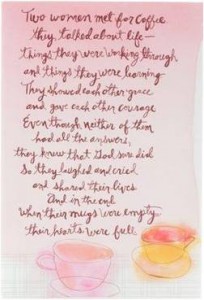 Two women met for Coffee.
they talked about life—
things they were working through
and things they were learning
They showed each other grace
and gave each other courage
Even though neither of them
had all the answers,
they knew that God sure did
So they laughed and cried
and shared their lives
And in the end
when their mugs were empty
their hearts were full.